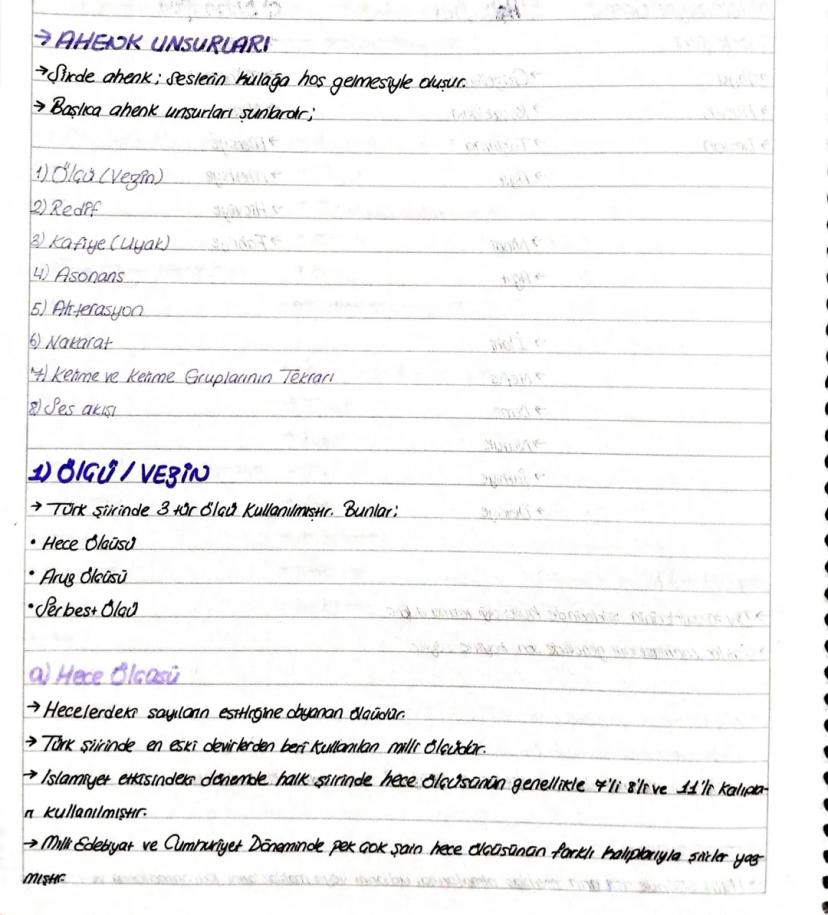 → AHENK UNSURLARI
→ Şiirde ahenk; seslerin kulağa hoş gelmesiyle oluşur.
→ Başlıca ahenk unsurları şunlardır;
1) Ölçü (Vezin)
2) Redif
3) Kafiye (Uyak)
4) Asonans
5) Aliterasyon
6) Nakarat
7) Kelime ve Kelime Gruplarının Tekrarı
8) Ses akışı
1) ÖLÇÜ / VEZİN
→ Türk şiirinde 3 tür ölçü kullanılmıştır. Bunlar;
• Hece Ölçüsü
• Aruz Ölçüsü
• Serbest Ölçü
a) Hece Ölçüsü
→ Hecelerdeki sayıların eşitliğine dayanan ölçüdür.
→ Türk şiirinde en eski devirlerden beri kullanılan milli ölçüdür.
→ İslamiyet etkisindeki dönemde halk şiirinde hece ölçüsünün genellikle 7'li 8'li ve 11'li kalıpla-
rı kullanılmıştır.
→ Milli Edebiyat ve Cumhuriyet Döneminde pek çok şair hece ölçüsünün farklı kalıplarıyla şiirler yaz-
mıştır.